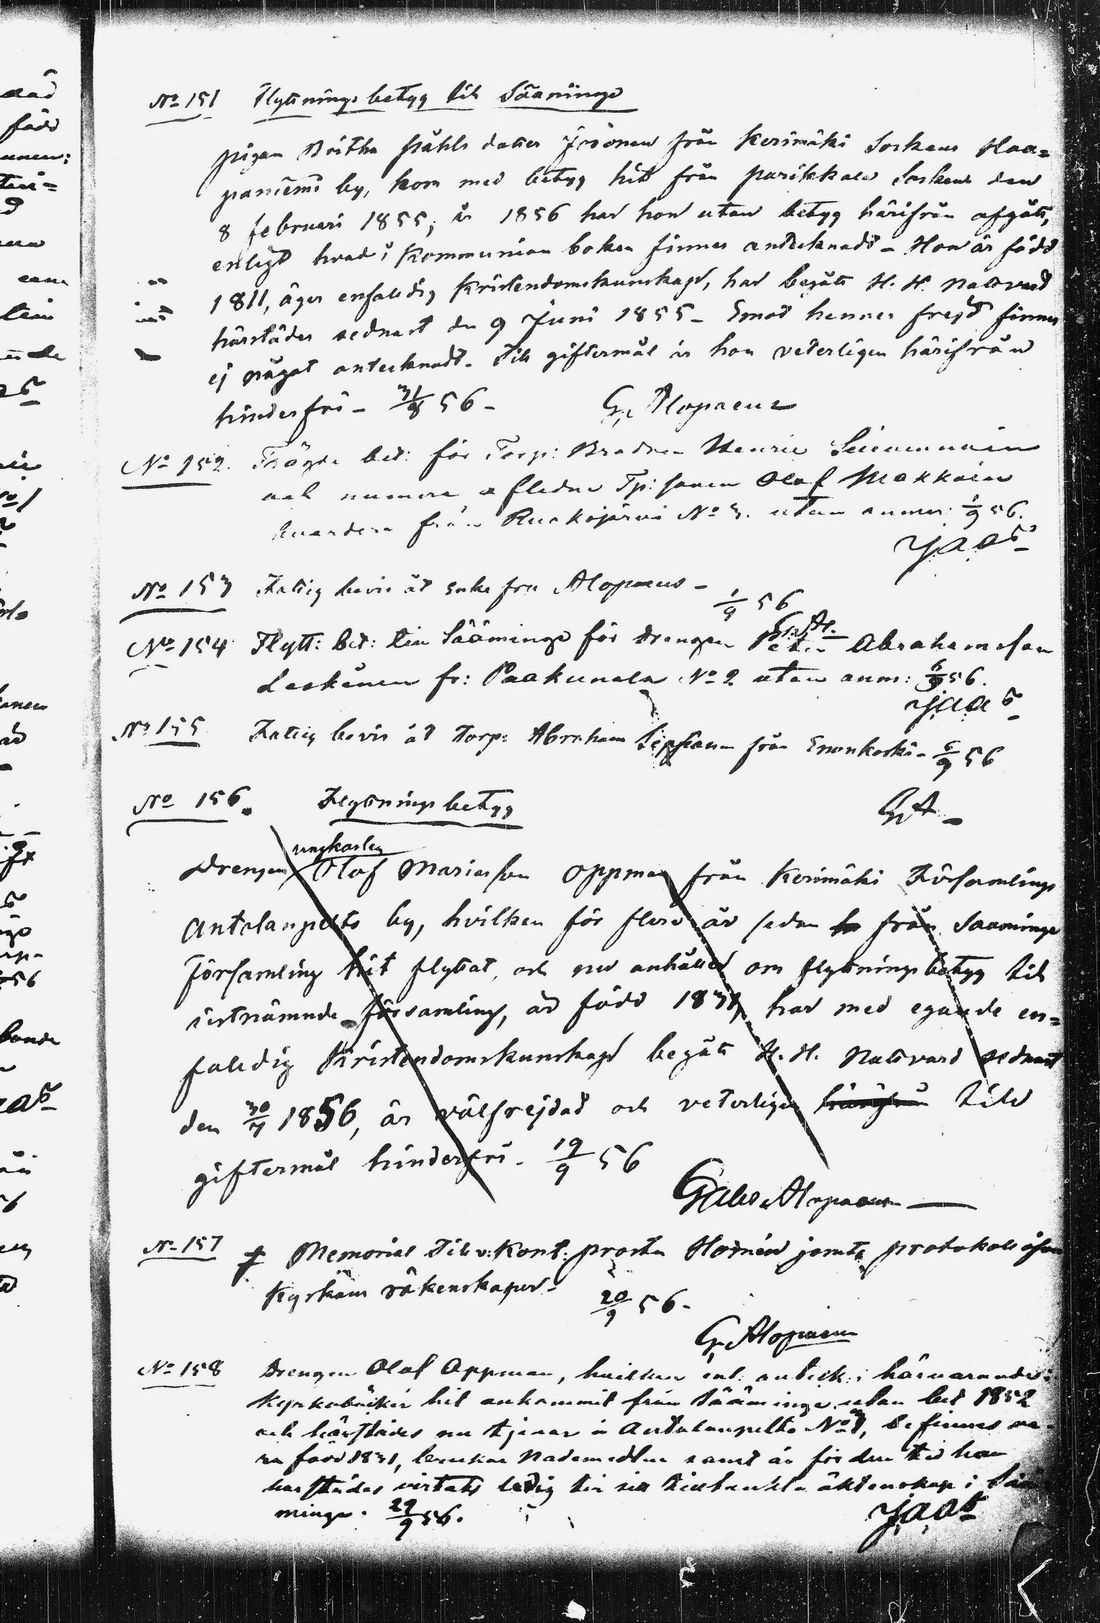 No 151 Flyttningsbetyg till Sääminge
pigan Britha Påhlsdotter Ihonen från Kerimäki Sockens Haa=
paniemi by, kom med betyg hit från parikkala Socken den
8 februari 1855; år 1856 har hon utan betyg härifrån afgått,
enligt hvad i Kommunion boken finnes antecknadt - Hon är född
1811, äger enfaldig kristendomskunskap, har begått H. H. nattvard
härstädes sednast den 9 Juni 1855 - Emot hennes frejd finnes
ej något antecknadt - till giftermål är hon veterligen härifrån
hinderfri - 31/8 56 -
G. Alopaeus
No 152. bet: för Torp: Henric
och numera aflidne Tp: sonen Olof Makkoin
från Ruokojärvi No 3. utan anmer: 1/9 56.
No 153 Fattig bevis åt Enkefru Alopaeus -
1/9 56
G. A.
No 154 Flytt: bet: till Sääminge för drengen Peter Abrahamsson
Laskinen fr: Paakunala No 2 utan anm: 56.
No 155 Fattig bevis åt Torp: Abraham från Enonkoski - 6/9 56
G A
No 156. Flyttningsbetyg
ungkarlen
Drengen Olof Mariasson Oppman från Kerimäki Församlings
Antolanpelto by, hvilken för flera år sedan från Sääminge
församling hit flyttat, och nu anhållit om flyttningsbetyg till
sistnämnde församling, är född 1831, har med egande en=
faldig Kristendomskunskap begått H. H. Nattvard sednast
den 1856, är välfrejdad och veterligen härifrån till
giftermål hinderfri - 19/9 56
Gabr. Alopaeus
No 157 Memorial till v: Kont: prosten Hornén jemte protokoll öfver
Kyrkans räkenskaper -
20/9 56 -
G. Alopaeus
No 158 Drengen Olof Oppman, hvilken enl: anteckn: i härvarande
Kyrkoböcker hit ankommit från Sääminge utan bet 1852
och härstädes nu tjenar i Antolanpelto No 1, befinnes va=
ra född 1831, samt är för den tid han
härstädes vistats ledig till sitt tillämnade äktenskap i Sää
minge. 29/9 56.